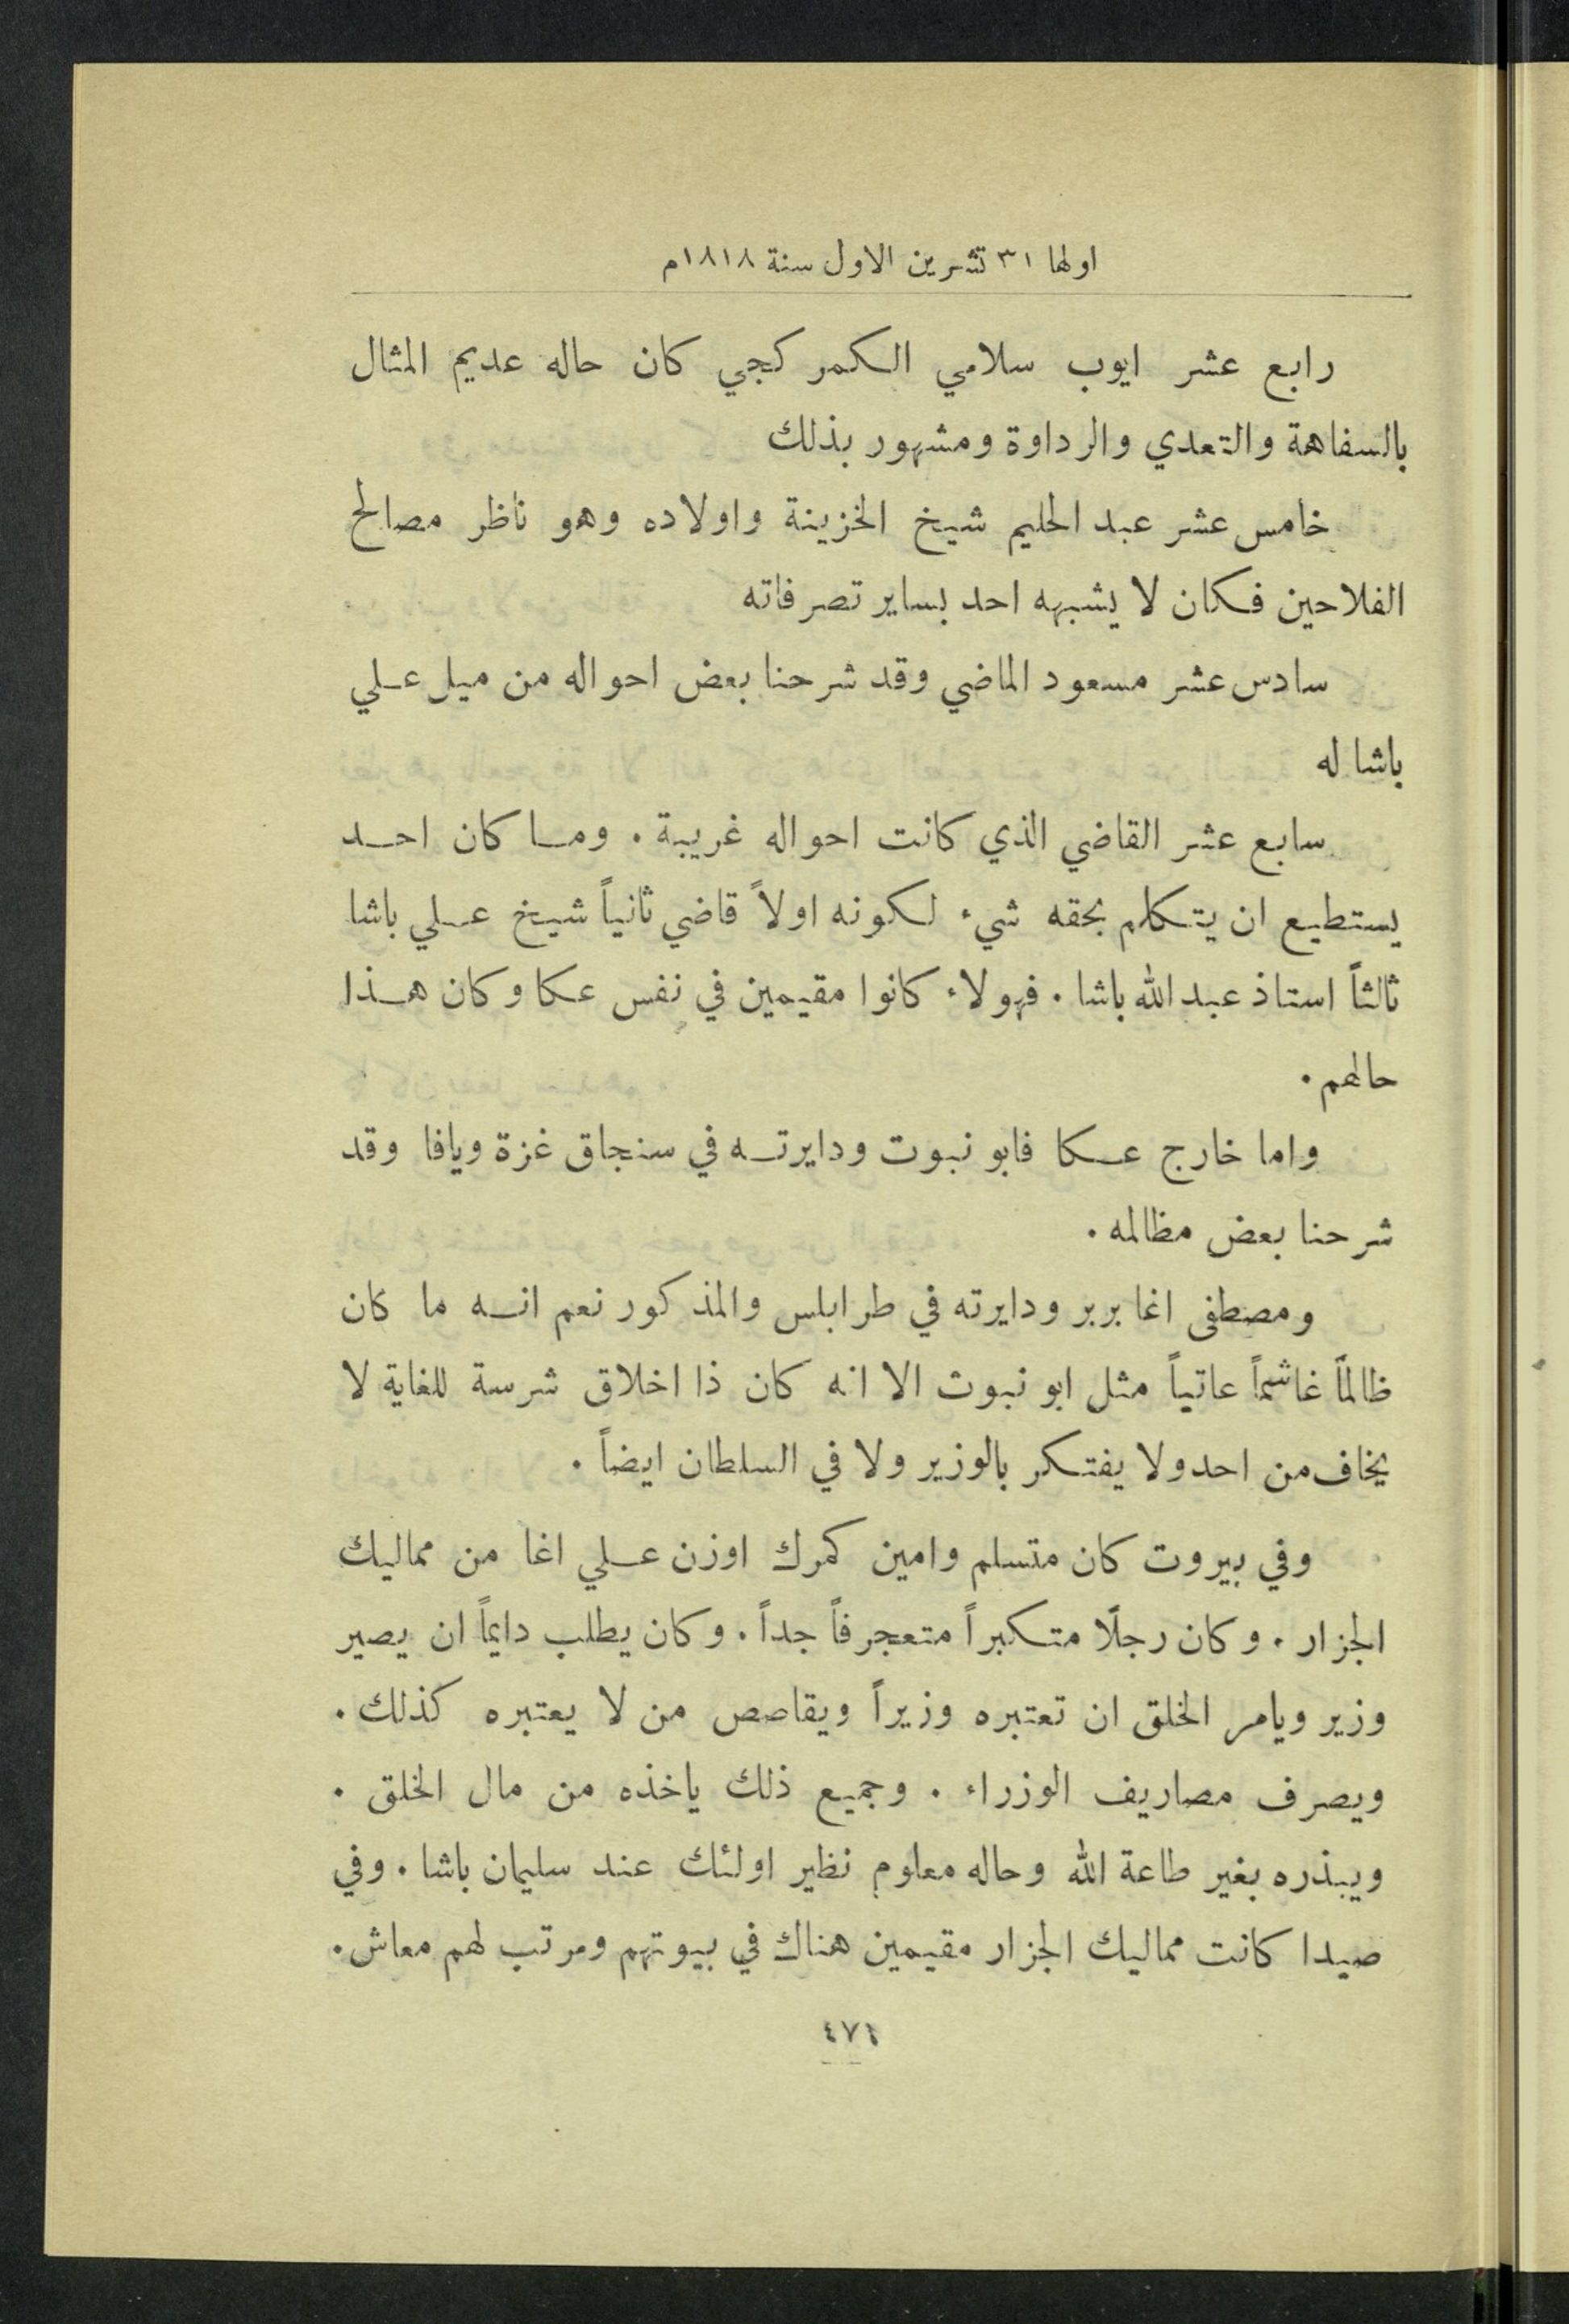 اولها ٣١ تشرين الاول سنة ١٨١٨م
رابع عشر ايوب سلامي الكمركجي كان حاله عديم المثال
بالسفاهة والتعدي والرداوة ومشهور بذلك
خامس عشر عبد الحليم شيخ الخزينة واولاده وهو ناظر مصالح
الفلاحين فكان لا يشبهه احد بساير تصرفاته
سادس عشر مسعود الماضي وقد شرحنا بعض احواله من ميل علي
باشا له
سابع عشر القاضي الذي كانت احواله غريبة . وما كان احد
يستطيع ان يتكلم بحقه شيء لكونه اولاً قاضي ثانياً شيخ علي باشا
ثالثاً استاذ عبد الله باشا . فهولاء كانوا مقيمين في نفس عكا وكان هذا
حالهم .
واما خارج عكا فابو نبوت ودايرته في سنجاق غزة ويافا وقد
شرحنا بعض مظالمه .
ومصطفى اغا بربر ودايرته في طرابلس والمذكور نعم انه ما كان
ظالماً غاشماً عاتياً مثل ابو نبوت الا انه كان ذا اخلاق شرسة للغاية لا
يخاف من احد ولا يفتكر بالوزير ولا في السلطان ايضاً .
وفي بيروت كان متسلم وامين كمرك اوزن علي اغا من مماليك
الجزار . وكان رجلًا متكبراً متعجرفاً جداً . وكان يطلب دايماً ان يصير
وزير ويامر الخلق ان تعتبره وزيراً ويقاصص من لا يعتبره كذلك .
ويصرف مصاريف الوزراء . وجميع ذلك ياخذه من مال الخلق .
ويبذره بغير طاعة الله وحاله معلوم نظير اولئك عند سليمان باشا . وفي
صيدا كانت مماليك الجزار مقيمين هناك في بيوتهم ومرتب لهم معاش .